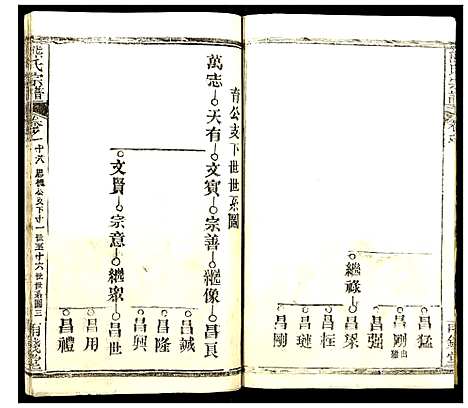 繼祿
昌猛
昌剛 出繼
昌強
昌珱
昌榁
昌璉
昌剛
育公支下世世系圖
萬志 天有 文賓 宗善 繼像 昌良
文賢 宗意 繼聚 昌世
昌誠
昌隆
昌興
昌用
昌禮
熊氏宗譜
卷之一
思機公支下十一世至十六世世系圖三